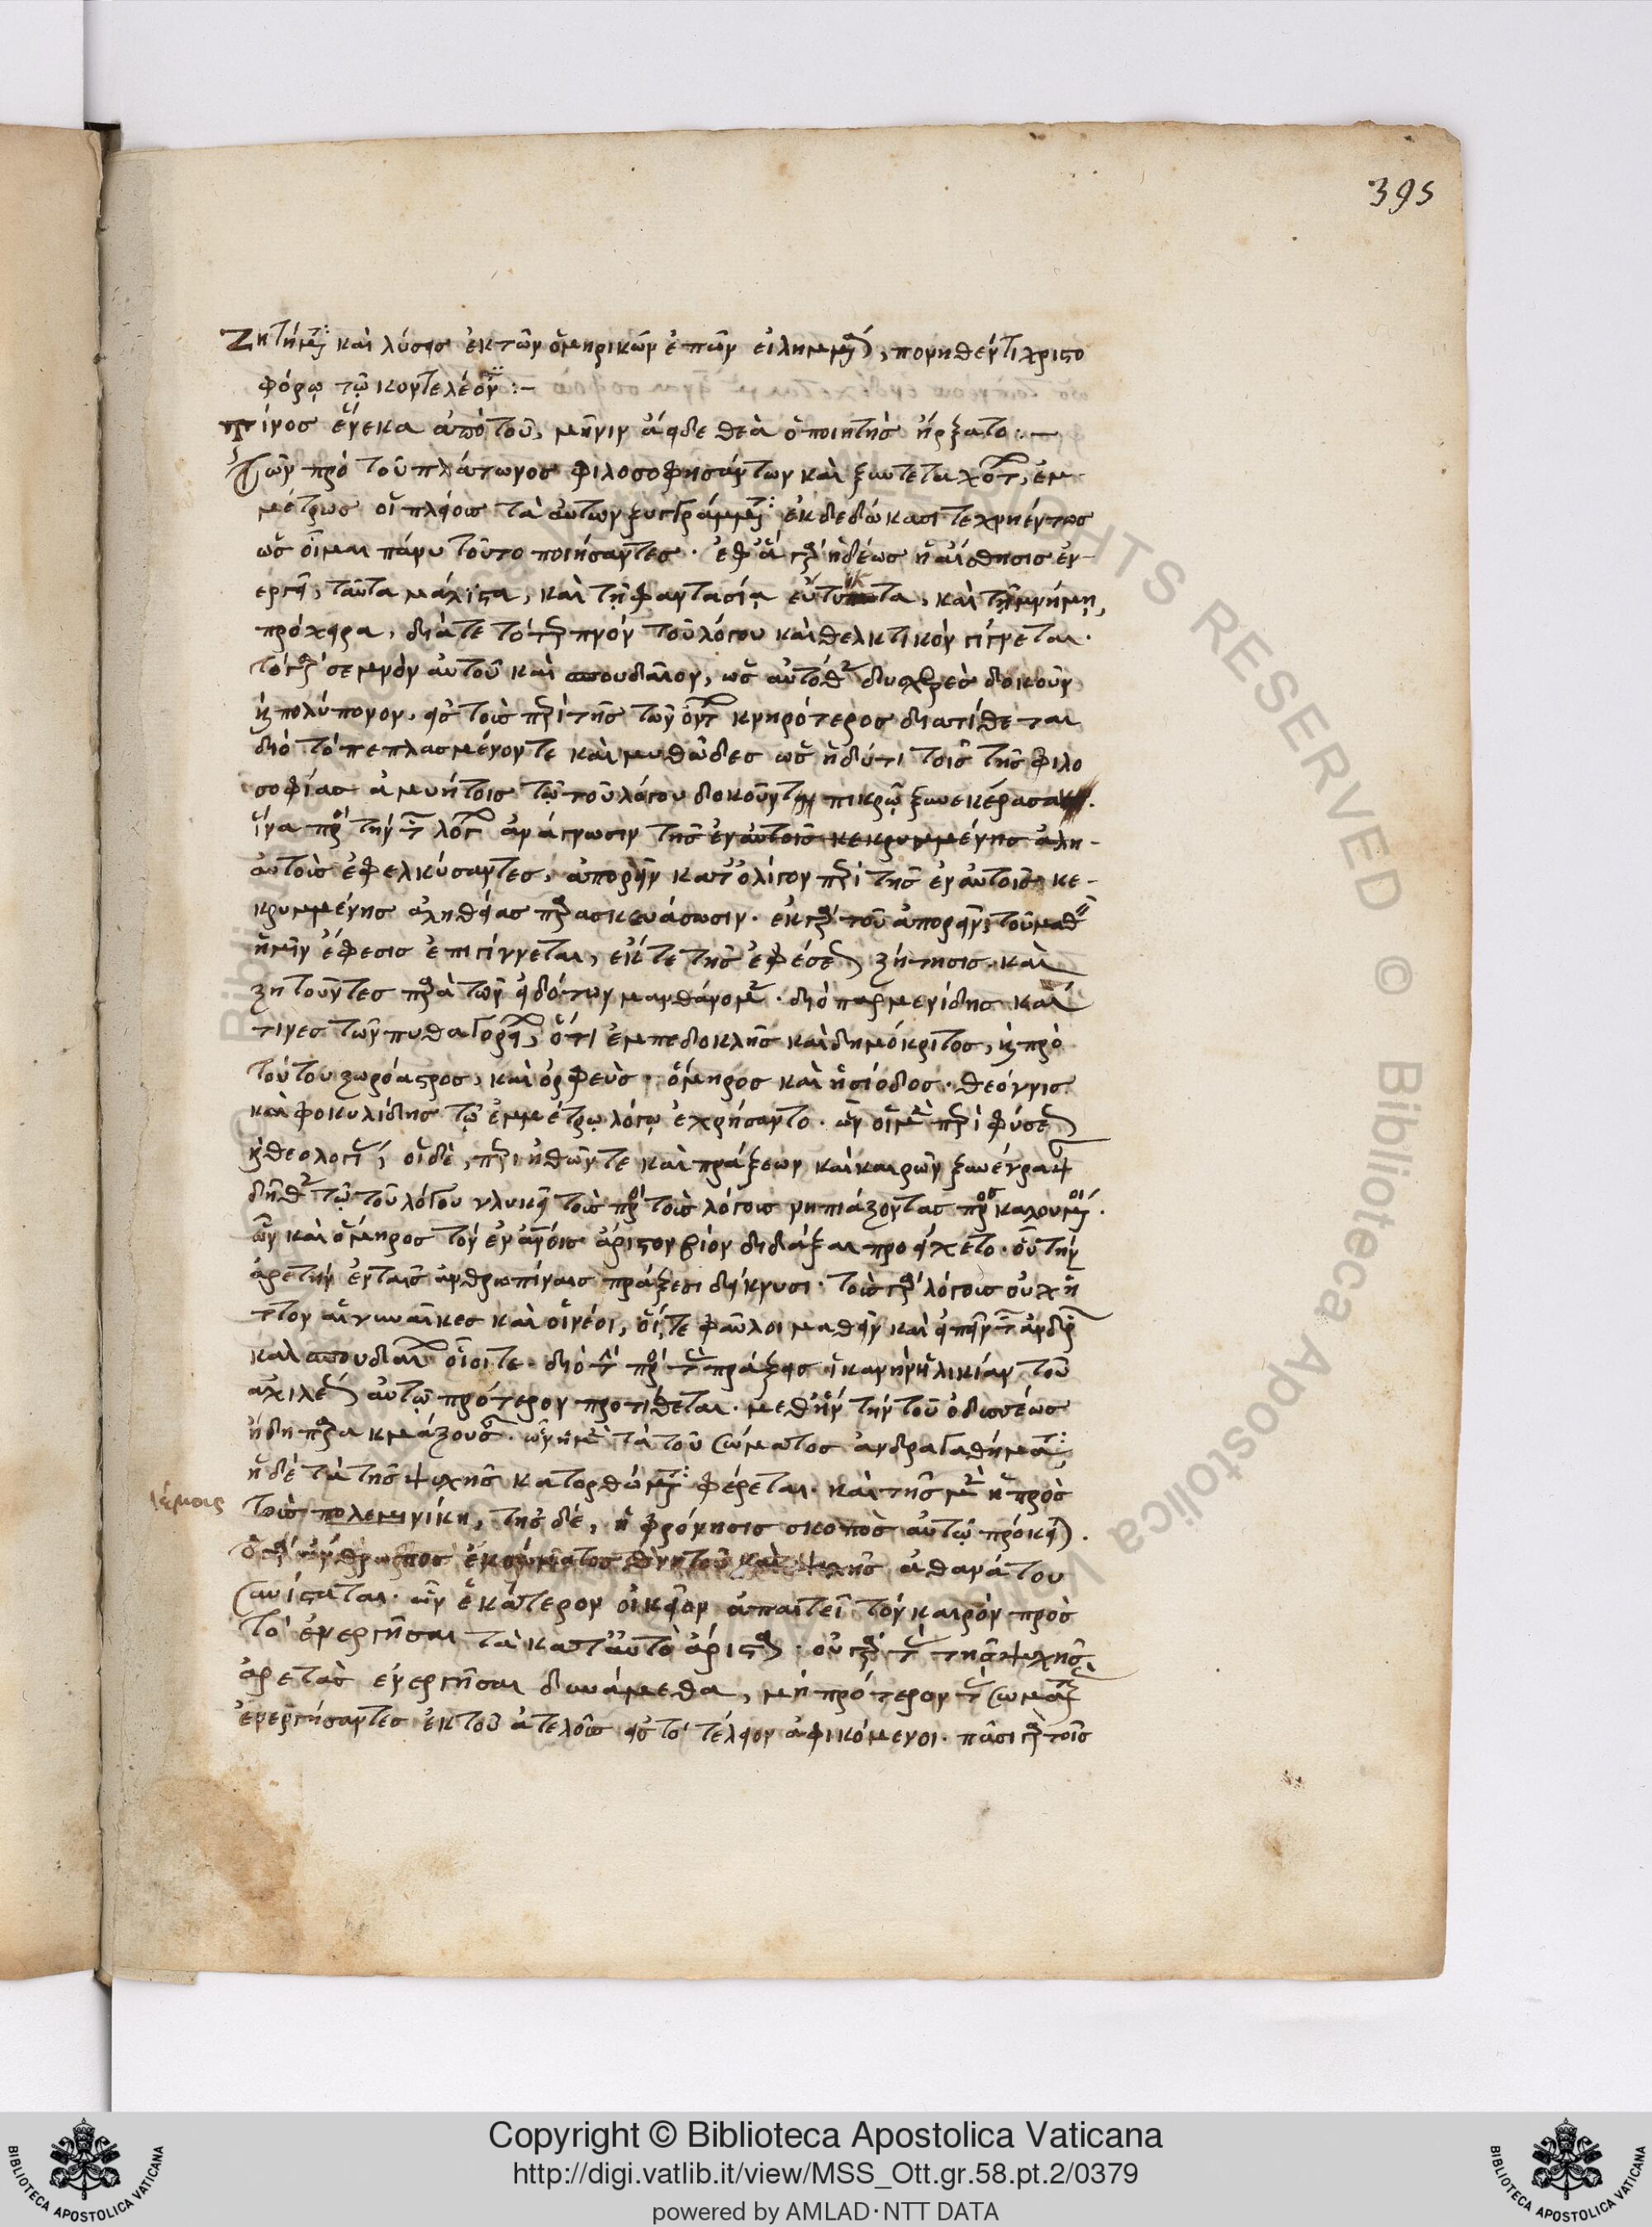 395
Ζητήμ(α)τ(α) καὶ λύσεις ἐκ τῶν ὁμηρικῶν ἐπῶν εἰλημμένα, πονηθέντα χριστο
φόρῳ τῷ κοντελέοντι :-
τίνος ἕνεκα ἀπὸ τοῦ, μῆνιν ἄειδε θεὰ ὁ ποιητὴς ἤρξατο :—
Τῶν πρὸ τοῦ πλάτωνος φιλοσοφησάντων καὶ ξυντεταχότων, ἐμ
μέτρως οἱ πλείους τὰ αὑτῶν ξυγγράμματα ἐκδεδώκασι τεχνηέντως
ὡς οἶμαι πάνυ τοῦτο ποιήσαντες. ἐφ' ἃ γὰρ ἡδέως ἡ αἴσθησις ἐν-
εργεῖ, ταῦτα μάλιστα, καὶ τῇ φαντασίᾳ καὶ τῇ μνήμῃ,
πρόχειρα, διά τε τὸ τερπνὸν τοῦ λόγου καὶ θελκτικὸν γίγνεται.
τὸ γὰρ σεμνὸν αὐτοῦ καὶ σπουδαῖον, ὡς αὐτόθεν δυσχερὲς δοκοῦν
καὶ πολύπονον, εἰς τοὺς περὶ τῆς τῶν ὄντων κνηρότερος διατίθεται
διὸ τὸ πεπλασμένον τε καὶ μυθῶδες ὡς ἡδύ τι τοῖς τῆς φιλο
σοφίας ἀμυήτοις τῷ τοῦ λόγου δοκοῦντι πικρῷ ξυνεκέρασαν.
ἵνα πρὸς τὴν τῶν λόγων ἀνάγνωσιν τῆς ἐν αὐτοῖς κεκρυμμένης ἀλη-
αὐτοὺς ἐφελκύσαντες, ἀπορεῖν κατ' ὀλίγον περὶ τῆς ἐν αὐτοῖς κε-
κρυμμένης ἀληθείας παρασκευάσωσιν. ἐκ γὰρ τοῦ ἀπορεῖν, τοῦ μαθεῖν
ἡμῖν ἔφεσις ἐπιγίγνεται, ἐκ τε τῆς ἐφέσεως ζήτησις. καὶ
ζητοῦντες παρὰ τῶν εἰδότων μανθάνομεν. διὸ παρμενίδης καί
τινες τῶν πυθαγορείων, ἔτι ἐμπεδοκλῆς καὶ δημόκριτος, καὶ πρὸ
τούτου ζωρόαστρος, καὶ ὀρφεὺς. ὅμηρος καὶ ἡσίοδος. θεόγνις
καὶ φοκυλίδης τῷ ἐμμέτρῳ λόγῳ ἐχρήσαντο. ὧν οἱ μὲν περὶ φύσεως
καὶ θεολογίας, οἱ δὲ, περὶ ἠθῶν τε καὶ πράξεων καὶ καιρῶν ξυνέγραψαν
δῆθεν τῷ τοῦ λόγου γλυκεῖ τοὺς πρὸς τοὺς λόγους νηπιάζοντας προσκαλούμενοι.
ὧν καὶ ὅμηρος τὸν ἐν ἀνθρώποις ἄριστον βίον διδάξαι προείχετο. οὗ τὴν
ἀρετὴν ἐν ταῖς ἀνθρωπίναις πράξεσι δείκνυσι. τοὺς γὰρ λόγους οὐχ ἧ
ττον αἱ γυναῖκες καὶ οἱ νέοι, οἵ τε φαῦλοι μαθεῖν καὶ εἰπεῖν τῶν ἀνδρῶν
καὶ σπουδαίων οἷοί τε. διὸ τὴν πρὸς τὰς πράξεις ἱκανὴν ἡλικίαν τοῦ
ἀχιλέως αὐτῷ πρότερον προτίθεται. μεθ' ἣν τὴν τοῦ ὀδυσσέως
ἤδη παρακμάζουσαν. ὧν ἡ μὲν τὰ τοῦ σώματος ἀνδραγαθήματα
ἡ δὲ τὰ τῆς ψυχῆς κατορθώματα φέρεται. καὶ τῆς μὲν ἡ πρὸς
λέμους
τοὺς πολεμι νίκη, τῆς δέ, ἡ φρόνησις σκοπὸς αὐτῷ πρόκειται.
ὁ γὰρ ἄνθρωπος ἐκ σώματος θνητοῦ καὶ ψυχῆς ἀθανάτου
συνίσταται. ὧν ἑκάτερον οἰκεῖον ἀπαιτεῖ τὸν καιρὸν πρὸς
τὸ ἐνεργῆσαι τὰ κατ' αὐτὸ ἄριστα. οὐ γὰρ τὰς τῆς ψυχῆς
ἀρετὰς ἐνεργῆσαι δυνάμεθα, μὴ πρότερον τὰς σώματος
ἐνεργήσαντες ἐκ τοῦ ἀτελοῦς εἰς τὸ τέλειον ἀφικόμενοι. πᾶσι γὰρ τοῖς
© Biblioteca Apostolica Vaticana
ALL RIGHTS RESERVED
Copyright © Biblioteca Apostolica Vaticana
http://digi.vatlib.it/view/MSS_Ott.gr.58.pt.2/0379
powered by AMLAD·NTT DATA
BIBLIOTECA APOSTOLICA VATICANA
BIBLIOTECA APOSTOLICA VATICANA